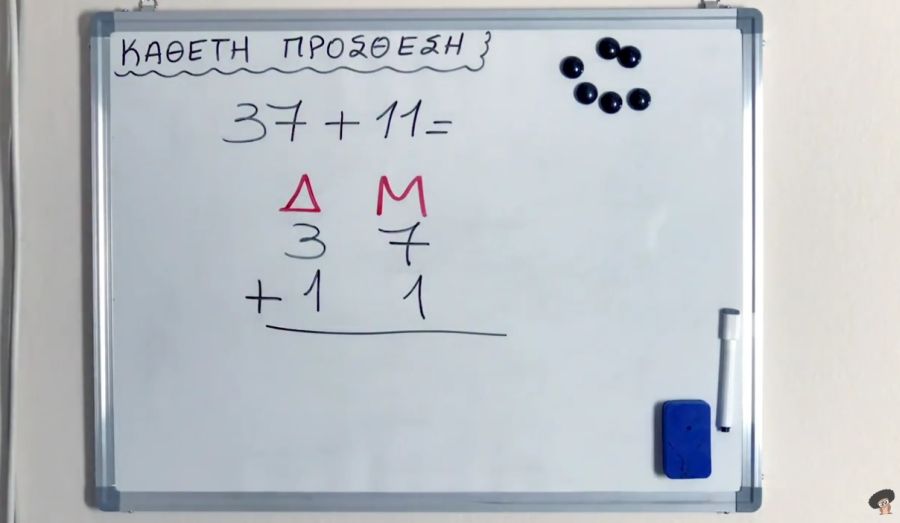 ΚΑΘΕΤΗ ΠΡΟΣΘΕΣΗ
37 + 11 =
Δ Μ
3 7
+ 1 1